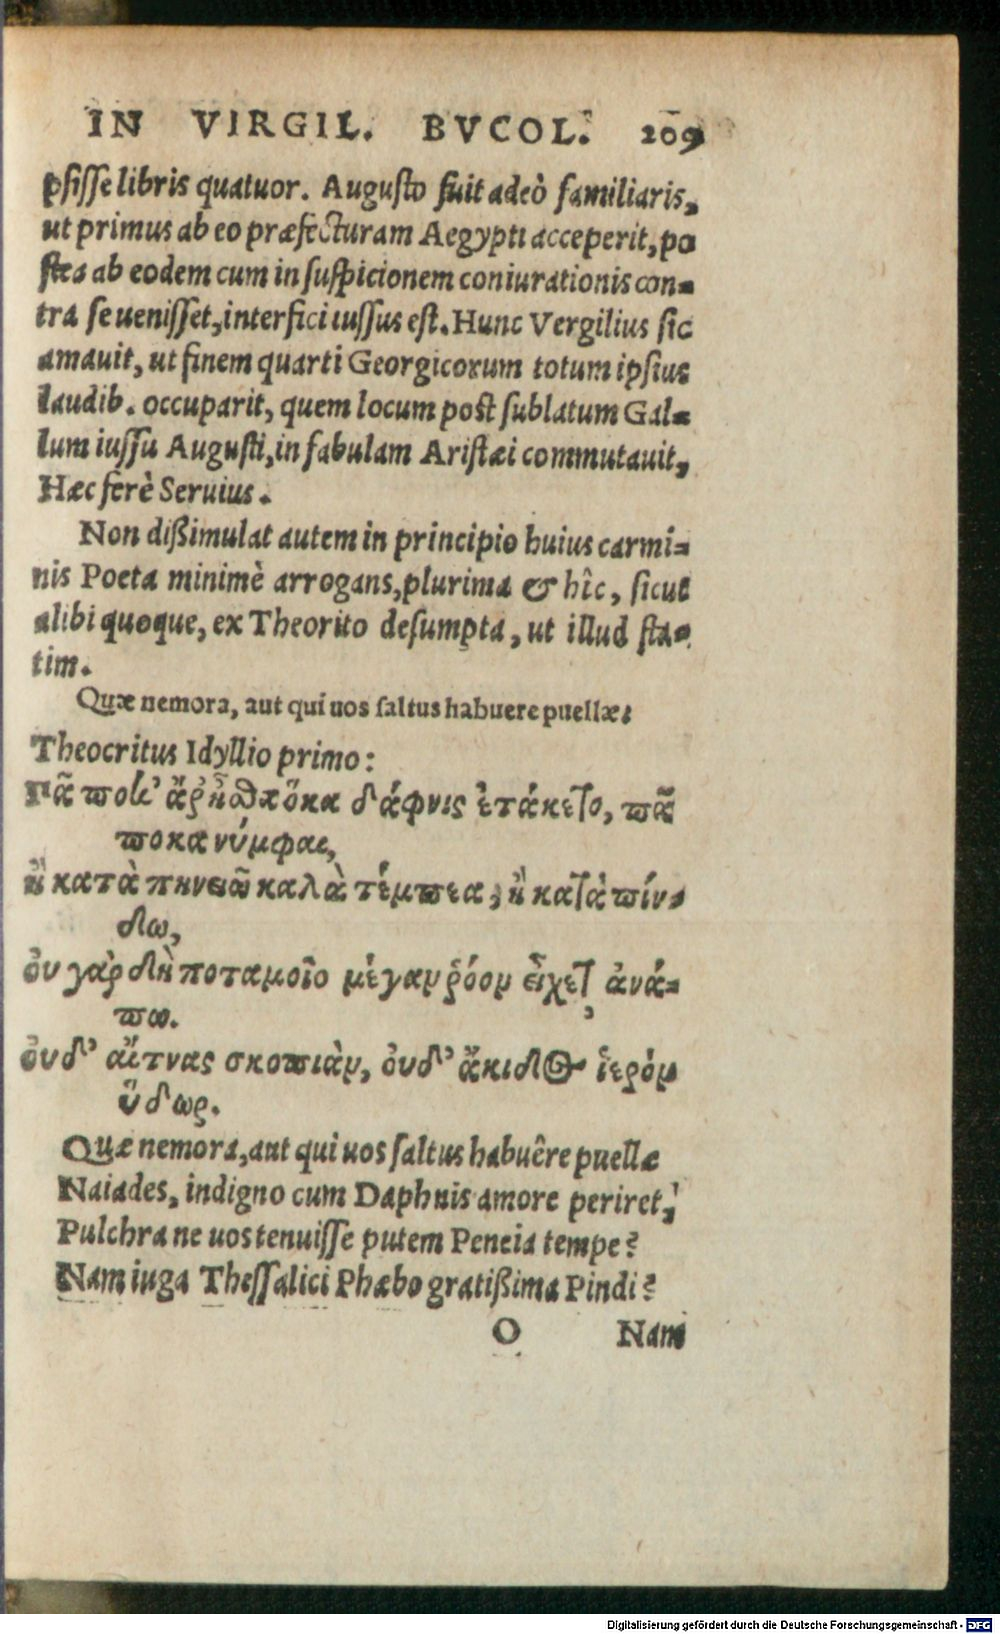 IN VIRGIL. BVCOL. 209
psisse libris quatuor. Augusto fuit adeò familiaris,
ut primus ab eo præfecturam Aegypti acceperit, po
stea ab eodem cum in suspicionem coniurationis con-
tra se uenisset, interfici iussus est. Hunc Vergilius sic
amauit, ut finem quarti Georgicorum totum ipsius
laudib. occuparit, quem locum post sublatum Gal-
lum iussu Augusti, in fabulam Aristæi commutauit,
Hæc ferè Seruius.
Non dißimulat autem in principio huius carmi-
nis Poeta minimè arrogans, plurima & hîc, sicut
alibi quoque, ex Theorito desumpta, ut illud sta-
tim.
Quæ nemora, aut qui uos saltus habuere puellæ?
Theocritus Idyllio primo:
Πᾶ ποκ’ ἄρ ἦσθ’ ὅκα δάφνις ἐτάκετο, πᾶ
ποκα νύμφαι,
ἢ κατὰ πηνειῶ καλὰ τέμπεα, ἢ κατὰ πίν-
δω,
ὀυ γὰρ δὴ ποταμοῖο μέγαν ῥόον εἴχετ’ ἀνά-
πω.
ὀυδ’ αἴτνας σκοπιὰν, ὀυδ’ ἄκιδος ἱερόν
ὕδωρ.
Quæ nemora, aut qui uos saltus habuêre puellæ
Naiades, indigno cum Daphnis amore periret,
Pulchra ne uos tenuisse putem Peneia tempe?
Nam iuga Thessalici Phæbo gratißima Pindi?
O Nam
Digitalisierung gefördert durch die Deutsche Forschungsgemeinschaft - DFG